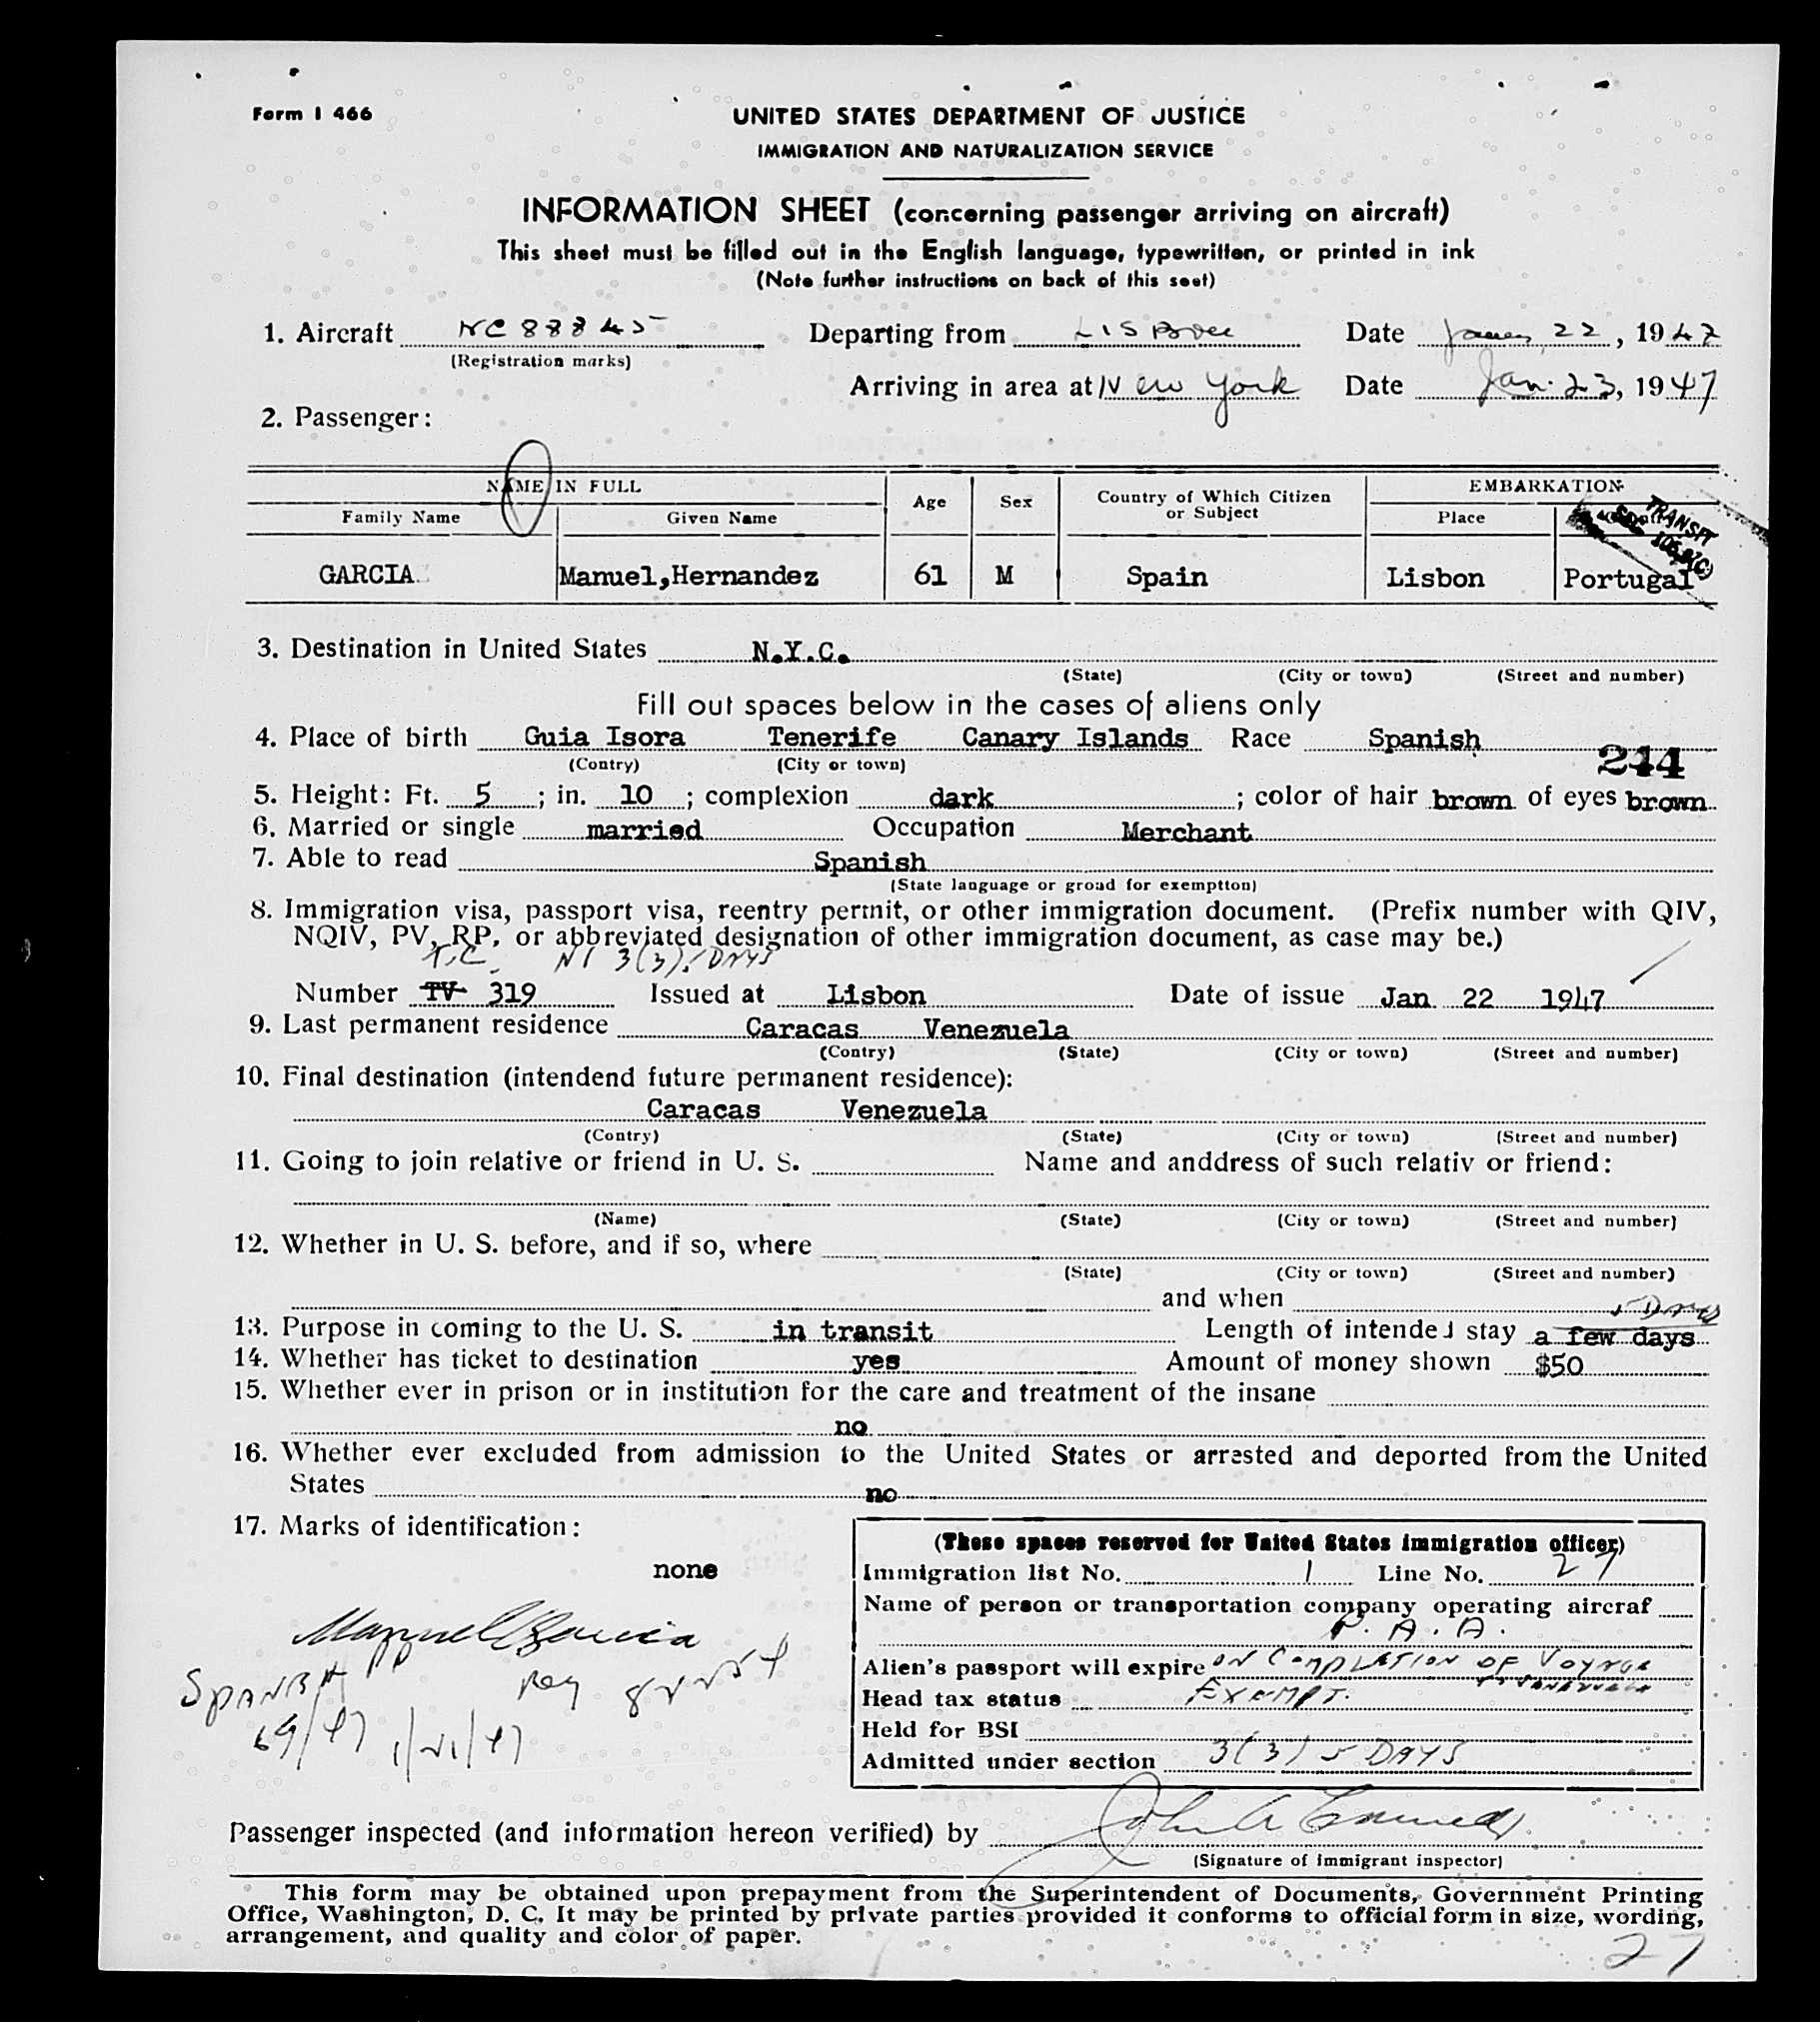 Form I 466
UNITED STATES DEPARTMENT OF JUSTICE
IMMIGRATION AND NATURALIZATION SERVICE
INFORMATION SHEET (concerning passenger arriving on aircraft)
This sheet must be filled out in the English language, typewritten, or printed in ink
(Note further instructions on back of this seet)
1. Aircraft NC 88845 Departing from Lisboa Date 22, 1947
(Registration marks)
Arriving in area at New York Date Jan. 23, 1947
2. Passenger:
NAME IN FULL Age Sex Country of Which Citizen or Subject EMBARKATION
Family Name Given Name Place
TRANSIT
GARCIA Manuel,Hernandez 61 M Spain Lisbon Portugal
3. Destination in United States N.Y.C.
(State) (City or town) (Street and number)
Fill out spaces below in the cases of aliens only
4. Place of birth Guia Isora Tenerife Canary Islands Race Spanish
(Contry) (City or town)
244
5. Height: Ft. 5 ; in. 10 ; complexion dark ; color of hair brown of eyes brown
6. Married or single married Occupation Merchant
7. Able to read Spanish
(State language or groud for exemptton)
8. Immigration visa, passport visa, reentry permit, or other immigration document. (Prefix number with QIV,
NQIV, PV, RP, or abbreviated designation of other immigration document, as case may be.)
T.C. 3(3) DAYS
Number TV 319 Issued at Lisbon Date of issue Jan 22 1947
9. Last permanent residence Caracas Venezuela
(Contry) (State) (City or town) (Street and number)
10. Final destination (intendend future permanent residence):
Caracas Venezuela
(Contry) (State) (City or town) (Street and number)
11. Going to join relative or friend in U. S. Name and anddress of such relativ or friend:
(Name) (State) (City or town) (Street and number)
12. Whether in U. S. before, and if so, where
(State) (City or town) (Street and number)
and when
5 Days
13. Purpose in coming to the U. S. in transit Length of intended stay a few days
14. Whether has ticket to destination yes Amount of money shown $50
15. Whether ever in prison or in institution for the care and treatment of the insane
no
16. Whether ever excluded from admission to the United States or arrested and deported from the United
States no
17. Marks of identification:
none
(These spaces reserved for United States immigration officer)
Immigration list No. 1 Line No. 27
Name of person or transportation company operating aircraf
P. A. A.
Manuel Garcia
Alien's passport will expire ON COMPLETION OF VOYAGE
TO VENEZUELA
SPANISH PP
69/47 1/21/47
Head tax status EXEMPT.
Held for BSI
Admitted under section 3(3) 5 DAYS
Passenger inspected (and information hereon verified) by John A
(Signature of immigrant inspector)
This form may be obtained upon prepayment from the Superintendent of Documents, Government Printing
Office, Washington, D. C. It may be printed by private parties provided it conforms to official form in size, wording,
arrangement, and quality and color of paper.
27